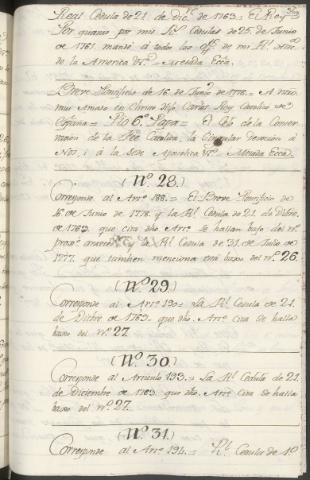 Real Cedula de 21. de Dic.e de 1763. = El Rey =
Por quanto por mis R.s Cedulas de 25. de Junio
de 1761 mandé à todos los
de la America
Breve Pontificio de 16. de Junio de 1778. = A nro
muy Amado en Christo Hijo Carlos Rey Catolico de
España = Pio 6.º Papa = El Celo de la Conser-
vacion de la Fee Catolica, la singular devocion à
Nos, i à la Sede Apostolica
(N.º 28.)
Corresponde al Art.º 188. = El Breve Pontificio de
16 de Junio de 1778. y la R.l Cedula de 21 de Dibre.
de 1763. que cita dho Art.º se hallan bajo del n.º
y la R.l Cedula de 31. de Julio de
1777. que tambien menciona está bajo del N.º 26
(N.º 29.)
Corresponde al Art.º 190 = La R.l Cedula de 21.
de Dicbre de 1763. que dho. Art.º cita se halla
bajo del N.º 27.
(N.º 30.)
Corresponde al Articulo 193. = La R.l Cedula de 21
de Diciembre de 1763. que dho. Art.º cita se halla
bajo del N.º 27.
(N.º 31.)
Corresponde al Art.º 194. = R.l Cedula de 1º